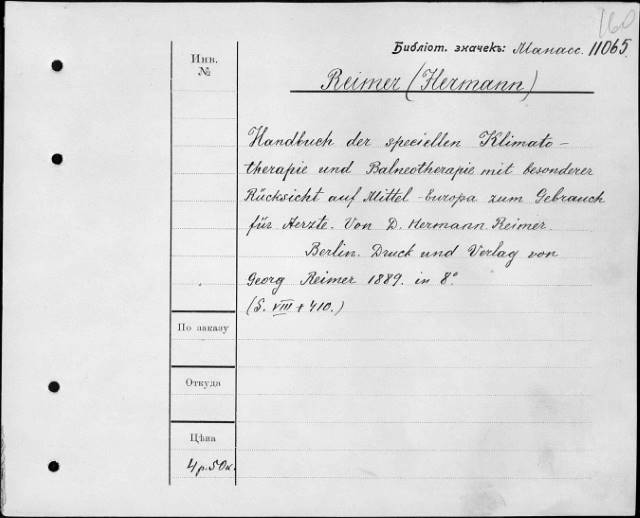 160
Библіот. значекъ: Манасс. 11065.
Инв.
№
Reimer (Hermann)
Handbuch der speciellen Klimato-
therapie und Balneotherapie mit besonderer
Rücksicht auf Mittel-Europa zum Gebrauch
für Aerzte. Von D. Hermann Reimer.
Berlin. Druck und Verlag von
Georg Reimer 1889. in 8°
(S. VIII + 410.)
По заказу
Откуда
Цѣна
4 р. 50 к.